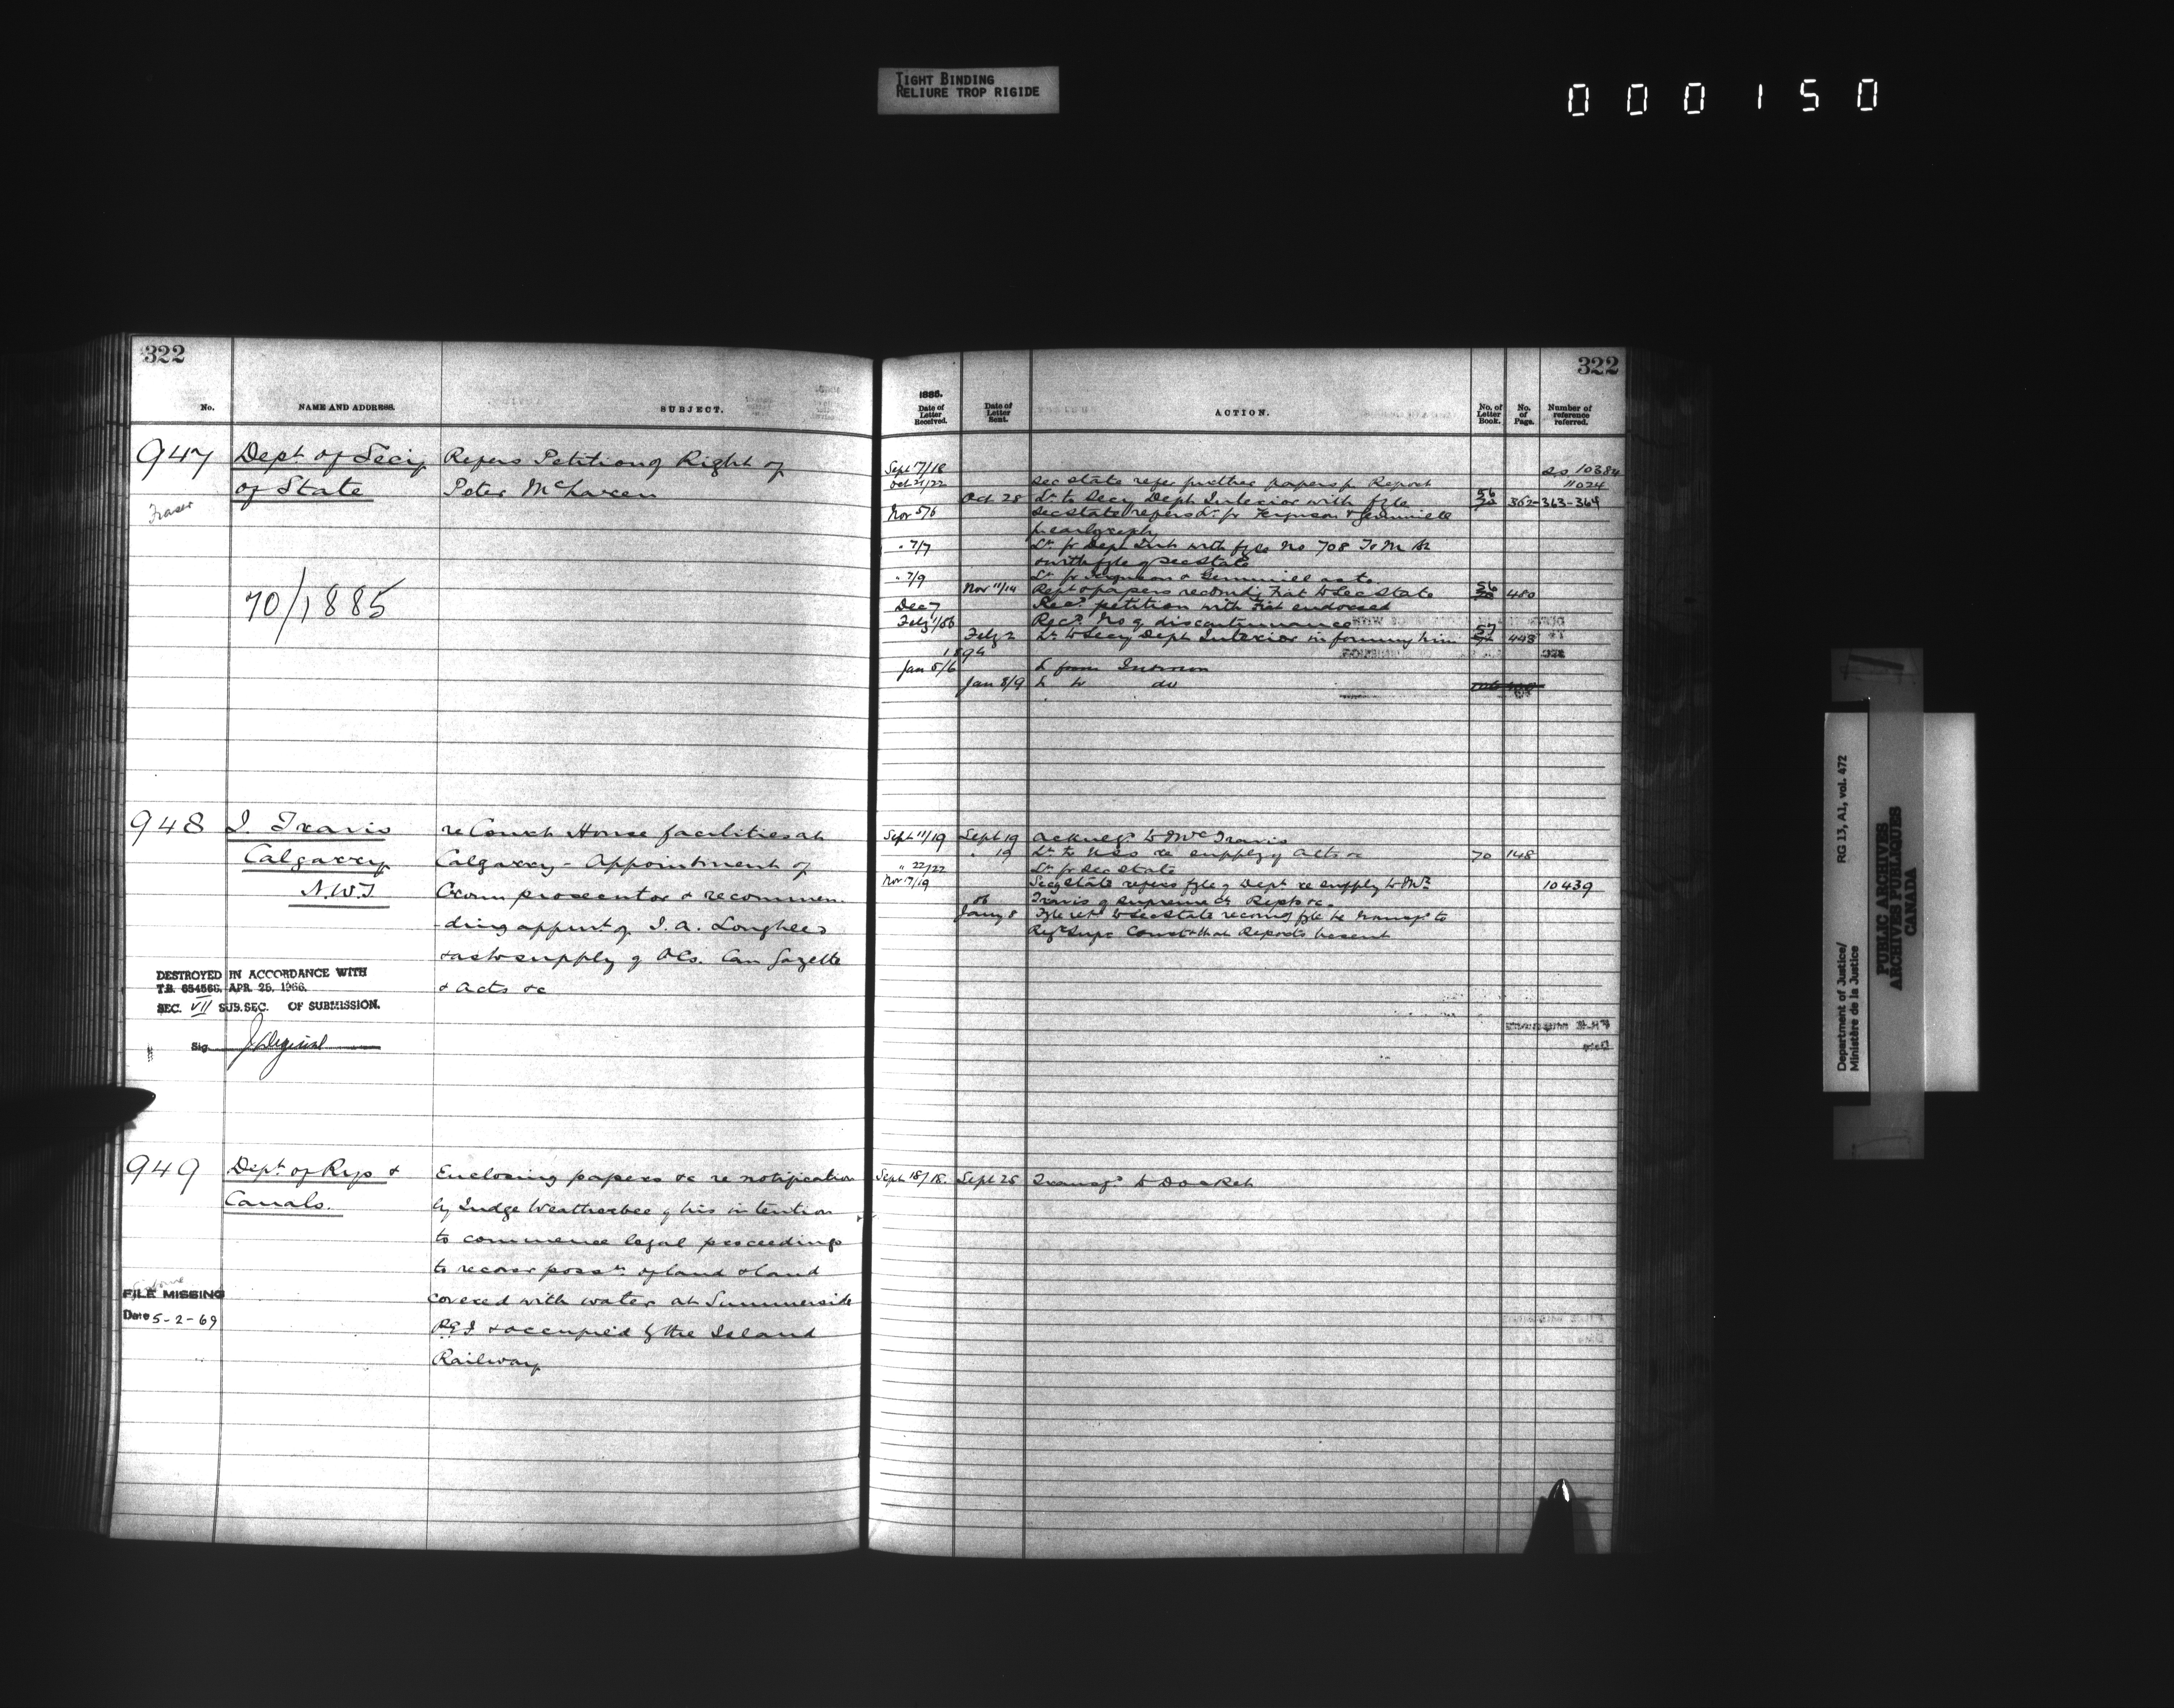 TIGHT BINDING
RELIURE TROP RIGIDE
000150
322
No. NAME AND ADDRESS. SUBJECT.
947 Dept. of Secy Refers Petition of Right of
of State Peter McLaren
Fraser
70/1885
948 J. Travis re Court House facilities at
Calgarry Calgarry - Appointment of
N.W.T Crown prosecutor & recommen
ding appmt of J. A. Lougheed
& as to supply of OCs. Can Gazette
& Acts &c
DESTROYED IN ACCORDANCE WITH
T.B. 654566, APR. 25, 1966.
SEC. VII SUB.SEC. OF SUBMISSION.
Sig.
949 Dept. of Rys & Enclosing papers &c re notification
Canals. by Judge Weatherbee of his intention
to commence legal proceedings
to recover possn. of land & land
FILE MISSING covered with water at Summerside
Date 5-2-69
P.E.I & occupied by the Island
Railway
322
1885.
Date of Letter Received. Date of Letter Sent. ACTION. No. of Letter Book. No. of Page. Number of reference referred.
Sept 17/18 10384
Oct 21/22 Sec State refer further papers for Report 11024
Oct 28 Lr. to Secy Dept Interior with fyle 56 362-363-364
Nov 5/6 Sec State refers Lr. fr Ferguson & Gemmill
" 7/7 Lr. fr Dept Int. with fyle No 708
& with fyle of Sec State
" 7/9 Lr. fr Ferguson & Gemmill as to
Nov 11/14 Rept & papers recomdg Fiat to Sec State 56 480
Dec 7 Recd. petition with Fiat endorsed
Feby 1/86 Recd. No of discontinuance
Feby 2 Lr. to Secy Dept Interior informing him 57 448
1894
Jan 5/6 L from Interior
Jan 8/9 L to do
Sept 11/19 Sept 19 Acknegt to Mr Travis
" 19 Lr. to re supply of Acts &c 70 148
" 22/22 Lr. fr Sec State
Nov 17/19 Secy State refers fyle of Dept re supply to Mr. 10439
86 Travis of Supreme Ct Repts &c.
Jany 8 Fyle retd to Sec State recomg fyle be transfd to
Regr Supr Court & that Reports be sent
Sept 18/18. Sept 25 Transfd. to Docket
RG 13, A1, vol. 472
Department of Justice/
Ministère de la Justice
PUBLIC ARCHIVES
ARCHIVES PUBLIQUES
CANADA